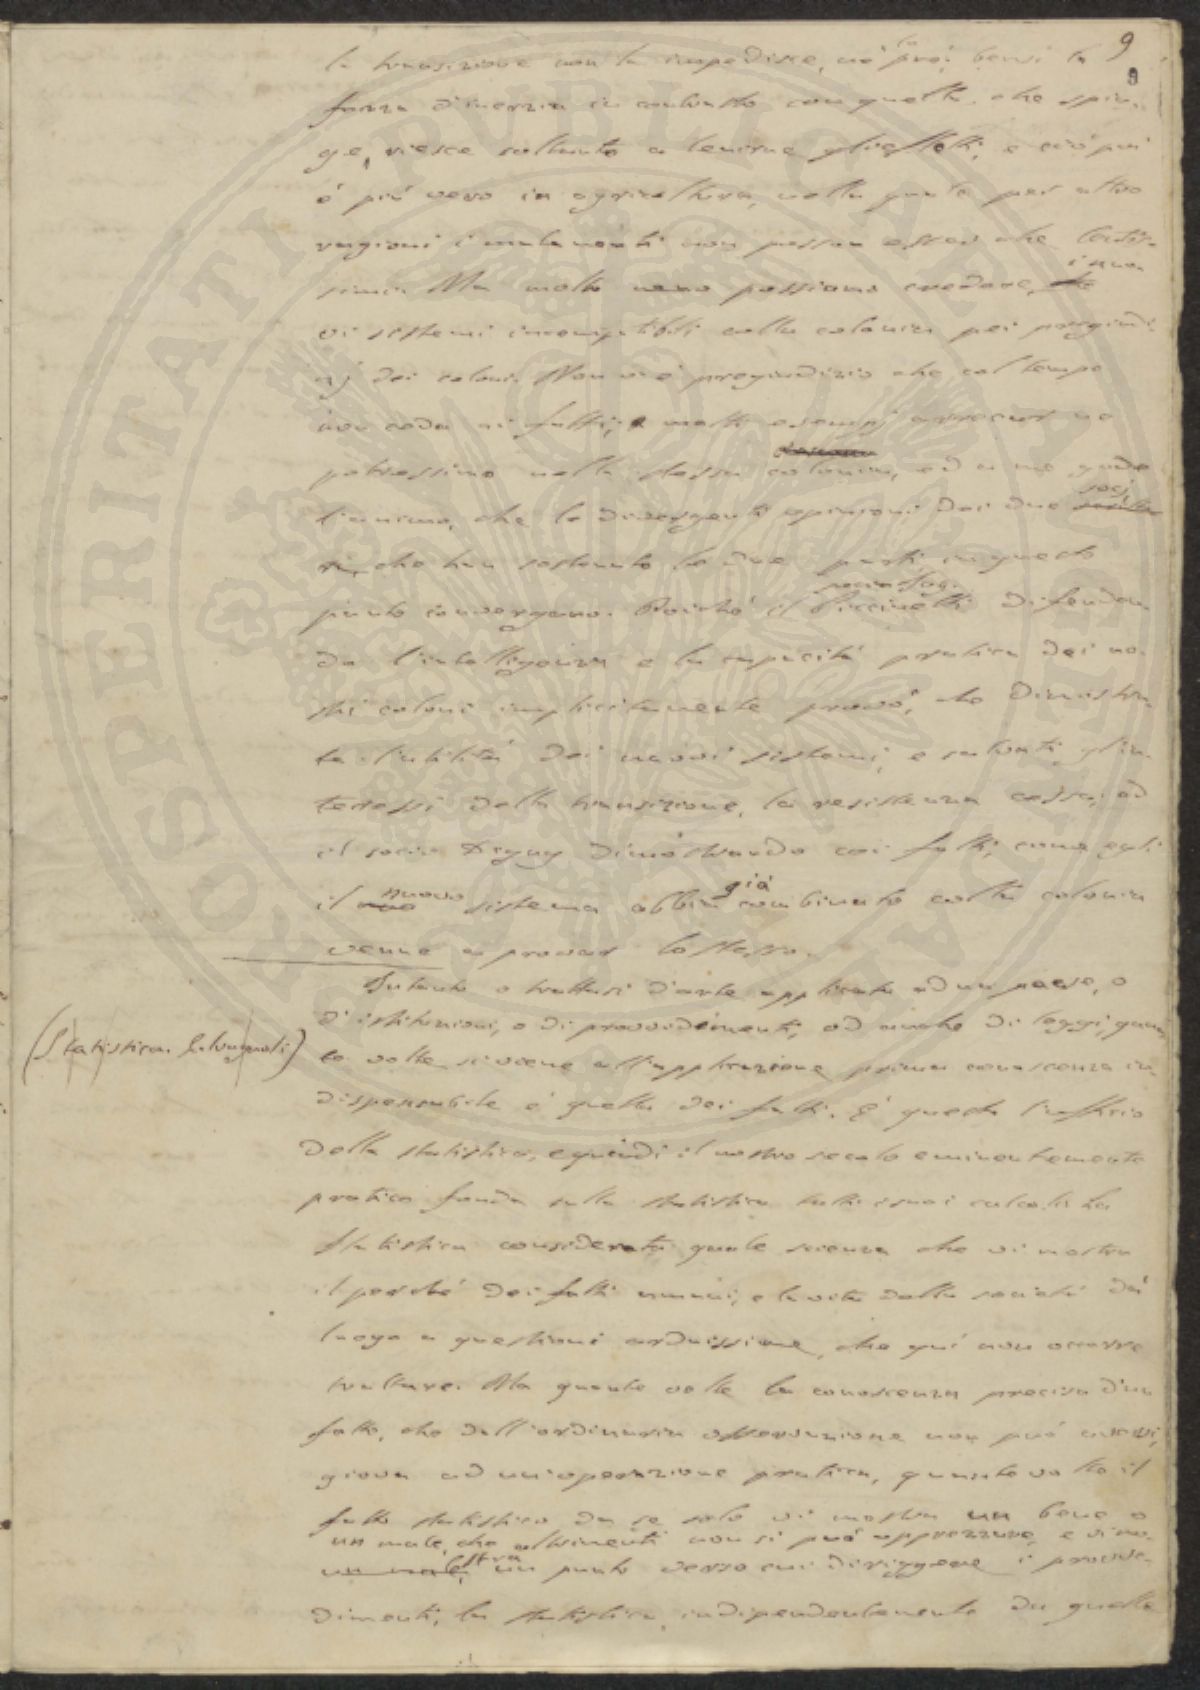 9
9
la transizione non la impedisce, nè la può; bensì la
forza d'inerzia in contrasto con quella, che spin-
ge, riesce soltanto a lenirne gli effetti, e ciò poi
è più vero in agricoltura, nella quale per altre
ragioni i mutamenti non posson essere che lentis-
simi. Ma molto meno possiamo credere, i nuo-
vi sistemi incompatibili colla colonia pei pregiudi-
zj dei coloni. Non vi è pregiudizio che col tempo
non ceda ai fatti; e molti esempj arrecar ne
potressimo nella stessa colonia, ed a me gode
l'animo, che le divergenti opinioni dei due socj
che han sostenuto le due parti in questo
punto convergano. Poichè il Puccinelli difenden-
do l'intelligenza e la capacità pratica dei no-
stri coloni implicitamente provò, che dimostra-
ta l'utilità dei nuovi sistemi, e salvati gl'in-
teressi della transizione, la resistenza cessa; ed
il socio dimostrando coi fatti, come egli
il nuovo sistema abbia già combinato colla colonia
venne a provar lo stesso.
Intanto o trattisi d'arte applicata ad un paese, o
d'istituzioni, o di provvedimenti, od anche di leggi, quan-
(Statistica. )
te volte si viene all'applicazione prima conoscenza in-
dispensabile è quella dei fatti. È questo l'uffizio
della statistica, e quindi il nostro secolo eminentemente
pratico fonda sulla statistica tutti i suoi calcoli. La
Statistica considerata quale scienza che vi mostra
il perchè dei fatti umani, e la vita della società dà
luogo a questioni arduissime, che quì non occorre
trattare. Ma quante volte la conoscenza precisa d'un
fatto, che dall'ordinaria osservazione non può aversi,
giova ad un'operazione pratica, quante volte il
fatto statistico da se solo vi mostra un bene o
un male, che altrimenti non si può apprezzare, e vi mo-
stra un punto verso cui diriggere i provve-
dimenti, la statistica, indipendentemente da quelle